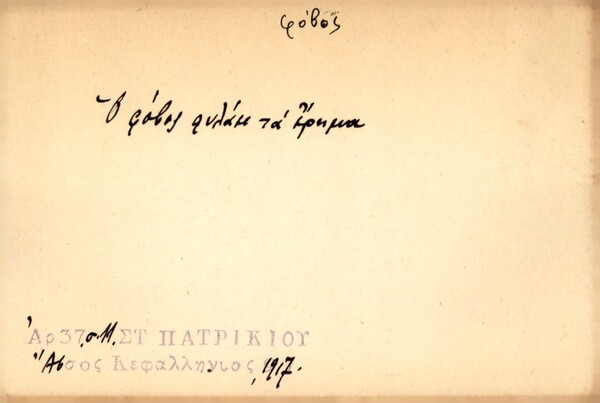 φόβος
Ὁ φόβος φυλάει τά ἔρημα
Ἀρ 37, σ.11. ΣΤ ΠΑΤΡΙΚΙΟΥ
Ἄσσος Κεφαλληνιος, 1917.